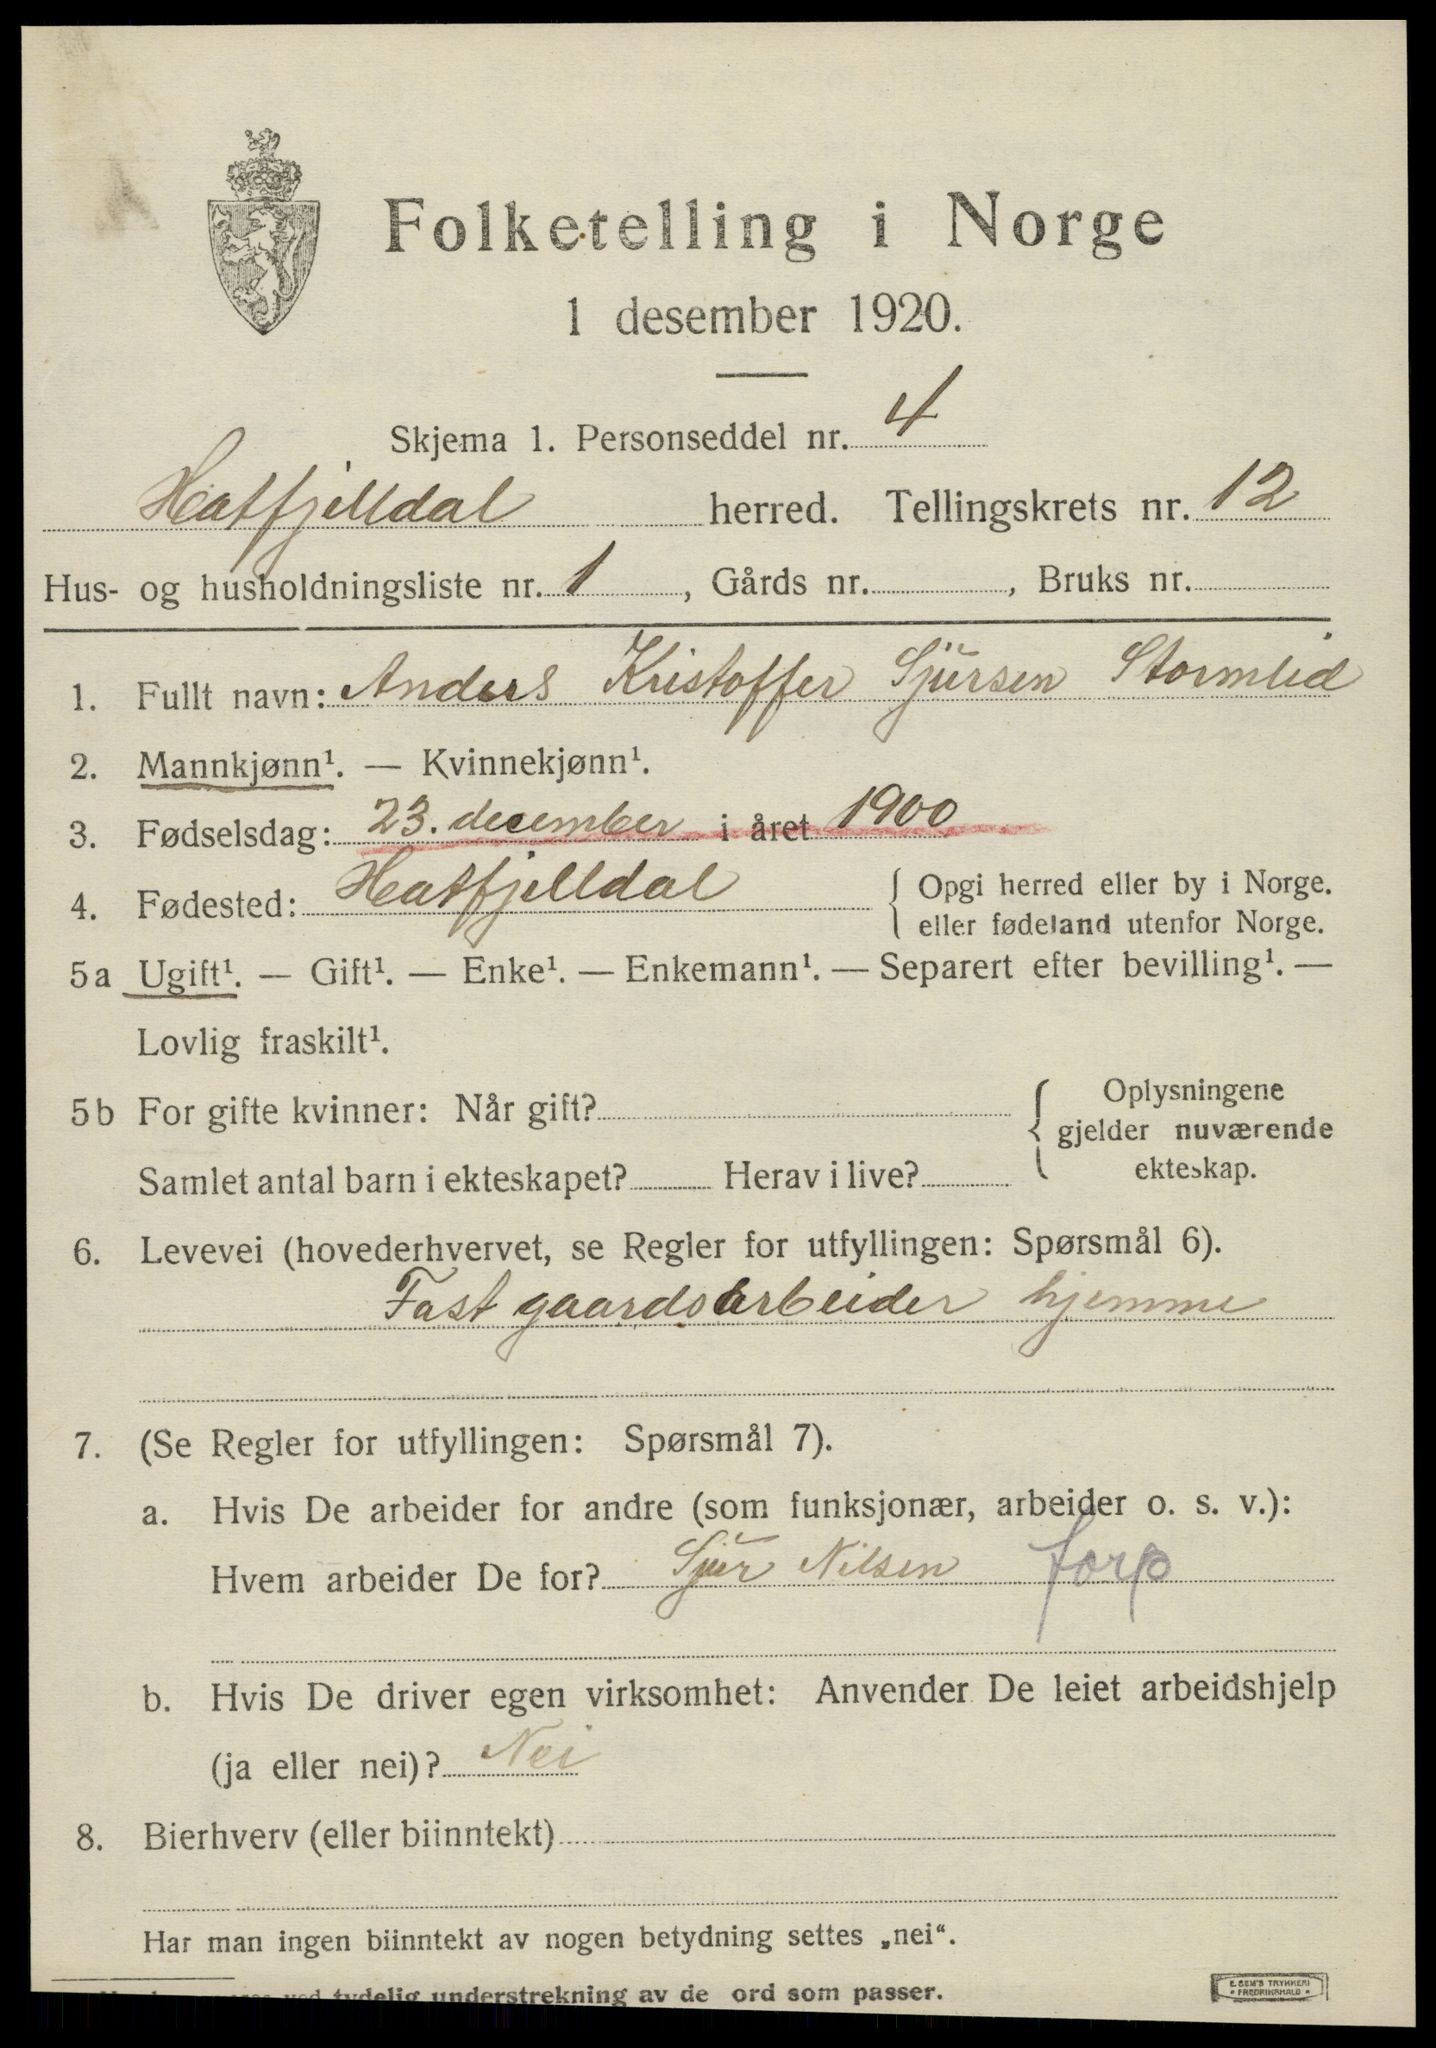 Folketelling i Norge
1 desember 1920.
Skjema 1. Personseddel nr. 4
Hatfjelldal herred. Tellingskrets nr. 12
Hus- og husholdningsliste nr. 1, Gårds nr. , Bruks nr.
1. Fullt navn: Anders Kristoffer Sjursen Stormlid
2. Mannkjønn¹. — Kvinnekjønn¹.
3. Fødselsdag: 23. december i året 1900
4. Fødested: Hatfjelldal { Opgi herred eller by i Norge.
eller fødeland utenfor Norge.
5a Ugift¹. — Gift¹. — Enke¹. — Enkemann¹. — Separert efter bevilling¹. —
Lovlig fraskilt¹.
5b For gifte kvinner: Når gift? { Oplysningene
gjelder nuværende
Samlet antal barn i ekteskapet? Herav i live? ekteskap.
6. Levevei (hovederhvervet, se Regler for utfyllingen: Spørsmål 6).
Fast gaardsarbeider hjemme
7. (Se Regler for utfyllingen: Spørsmål 7).
a. Hvis De arbeider for andre (som funksjonær, arbeider o. s. v.):
Hvem arbeider De for? Sjur Nilsen
b. Hvis De driver egen virksomhet: Anvender De leiet arbeidshjelp
(ja eller nei)? Nei
8. Bierhverv (eller biinntekt)
Har man ingen biinntekt av nogen betydning settes „nei“.
ved tydelig understrekning av de ord som passer.
E. SEM'S TRYKKERI
• FREDRIKSHALD •